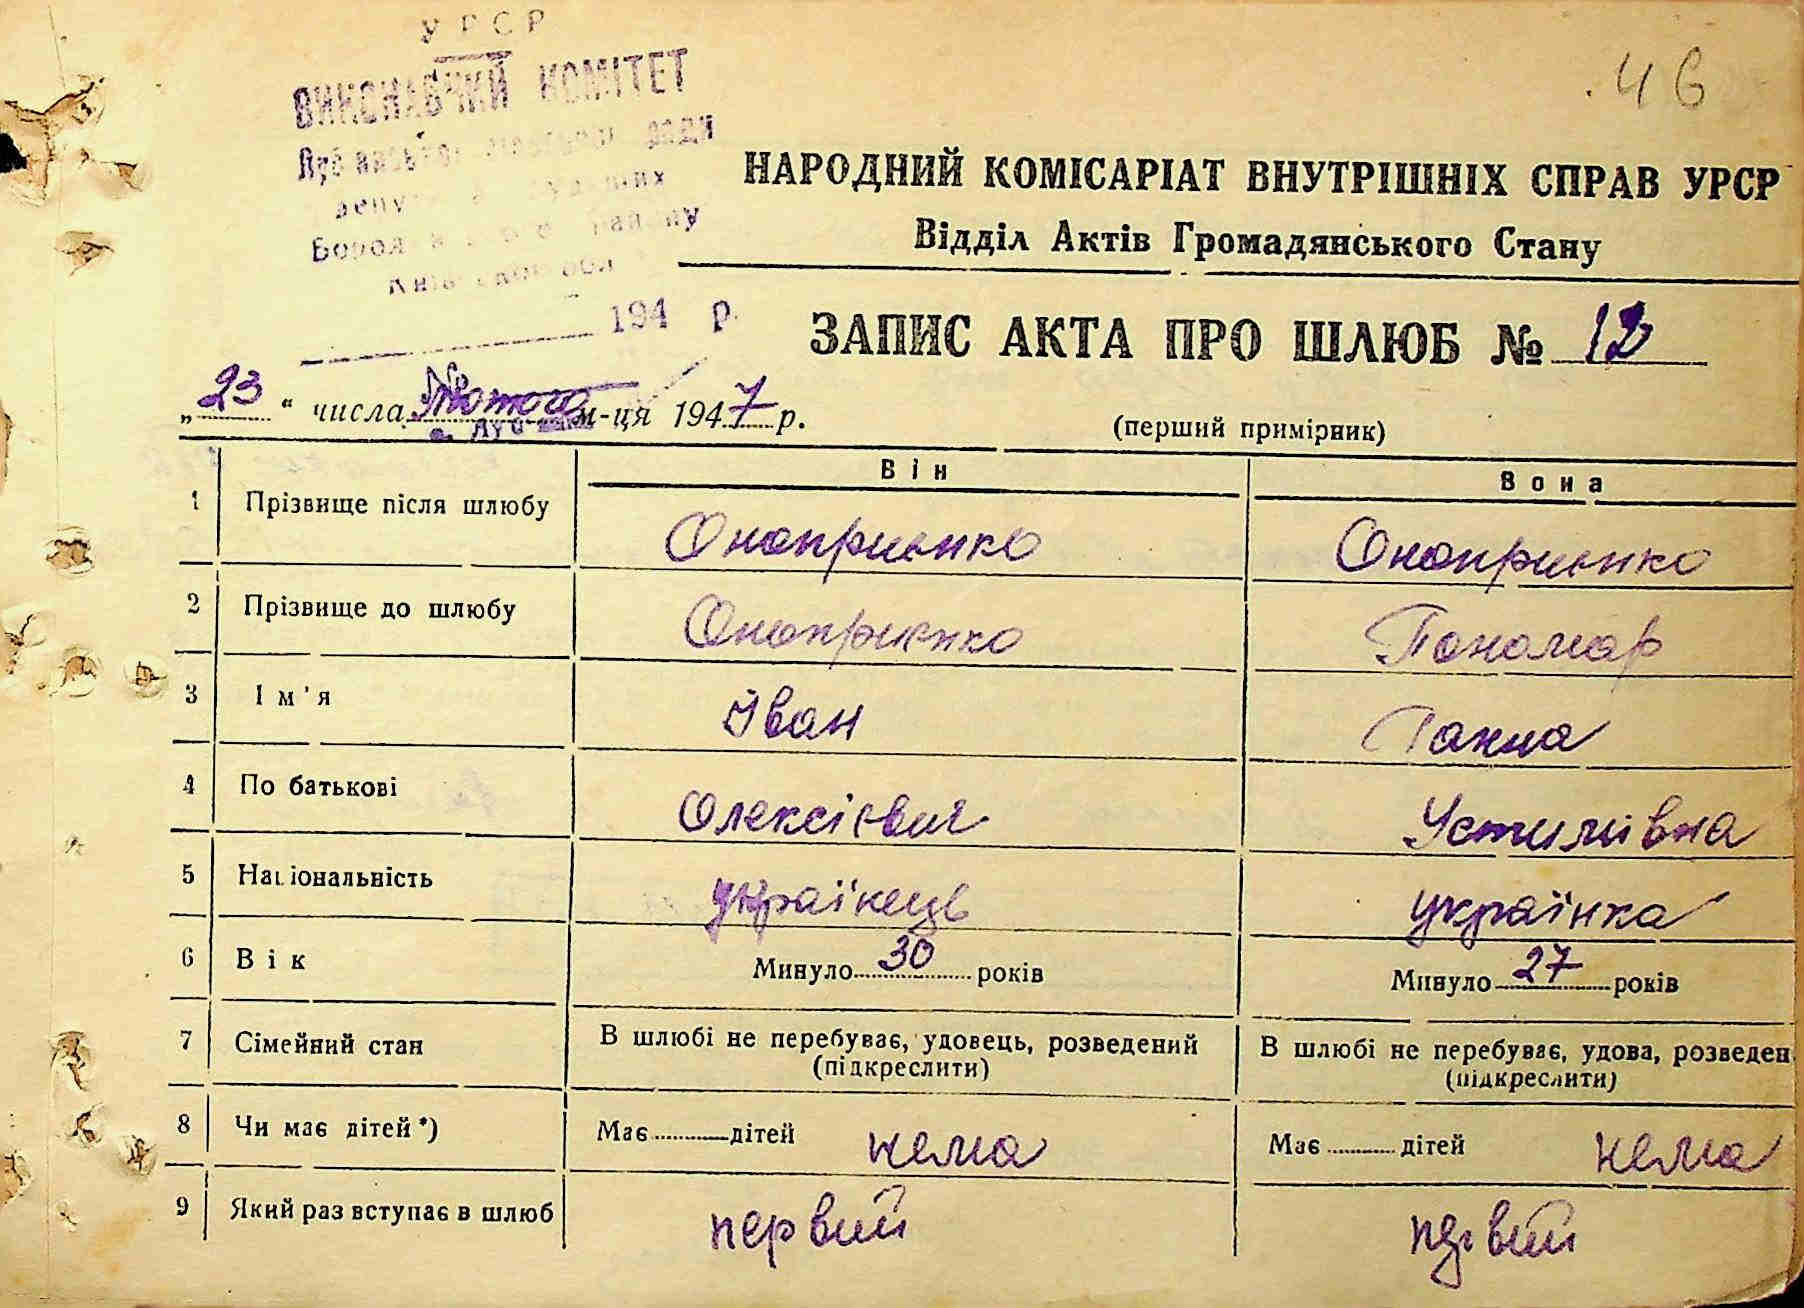 УРСР
ВИКОНАВЧИЙ КОМІТЕТ
ради
району
194 р.
46
НАРОДНИЙ КОМІСАРІАТ ВНУТРІШНІХ СПРАВ УРСР
Відділ Актів Громадянського Стану
ЗАПИС АКТА ПРО ШЛЮБ № 12
„23“ числа Лютого м-ця 1947 р.
(перший примірник)
Він Вона
1 Прізвище після шлюбу Оноприенко Оноприенко
2 Прізвище до шлюбу Оноприенко Пономар
3 Ім'я Іван Ганна
4 По батькові Олексієвич Устимівна
5 Національність українець українка
6 Вік Минуло 30 років Минуло 27 років
7 Сімейний стан В шлюбі не перебуває, удовець, розведений В шлюбі не перебуває, удова, розведен
(підкреслити) (підкреслити)
8 Чи має дітей*) Має дітей нема Має дітей нема
9 Який раз вступає в шлюб первий первий